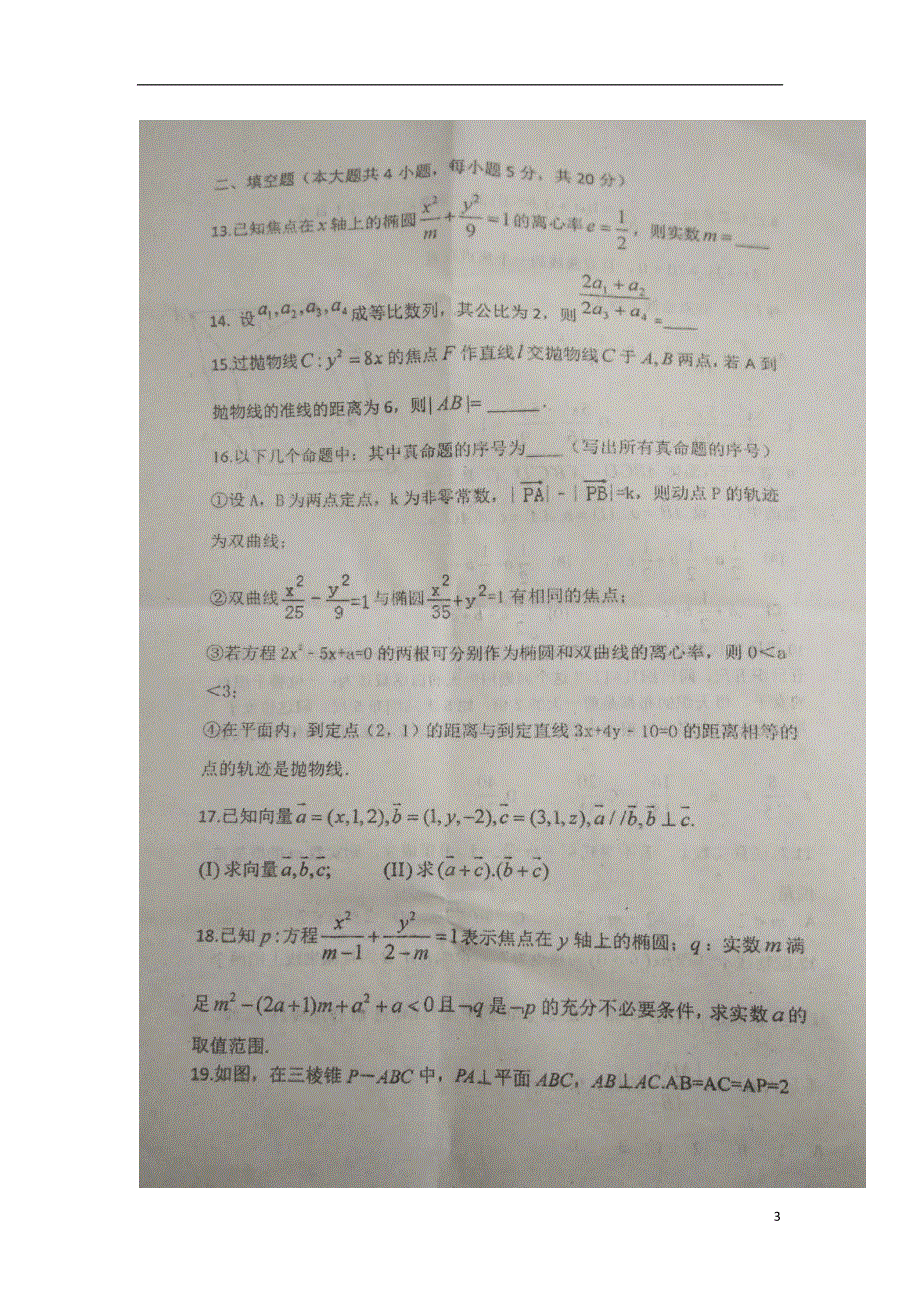 二、填空题(本大题共 4 小题, 每小题 5 分, 共 20 分)
13.已知焦点在 x 轴上的椭圆 x²/m + y²/9 = 1 的离心率 e = 1/2 , 则实数 m = ____
14. 设 a₁,a₂,a₃,a₄ 成等比数列, 其公比为 2, 则 (2a₁ + a₂)/(2a₃ + a₄) = ____
15.过抛物线 C : y² = 8x 的焦点 F 作直线 l 交抛物线 C 于 A, B 两点, 若 A 到
抛物线的准线的距离为 6, 则| AB |= _____ .
16.以下几个命题中: 其中真命题的序号为____ (写出所有真命题的序号)
①设 A, B 为两点定点, k 为非零常数, |PA→| - |PB→|=k, 则动点 P 的轨迹
为双曲线;
②双曲线 x²/25 - y²/9 =1 与椭圆 x²/35 + y² =1 有相同的焦点;
③若方程 2x² - 5x+a=0 的两根可分别作为椭圆和双曲线的离心率, 则 0<a
<3;
④在平面内, 到定点 (2, 1) 的距离与到定直线 3x+4y - 10=0 的距离相等的
点的轨迹是抛物线.
17.已知向量 a→ = (x,1,2), b→ = (1, y,−2), c→ = (3,1, z), a→ // b→, b→ ⊥ c→.
(I) 求向量 a→, b→, c→; (II) 求 (a→ + c→).(b→ + c→)
18.已知 p : 方程 x²/(m−1) + y²/(2−m) = 1 表示焦点在 y 轴上的椭圆; q : 实数 m 满
足 m² − (2a+1)m + a² + a < 0 且 ¬q 是 ¬p 的充分不必要条件, 求实数 a 的
取值范围.
19.如图, 在三棱锥 P−ABC 中, PA⊥平面 ABC, AB⊥AC.AB=AC=AP=2
3